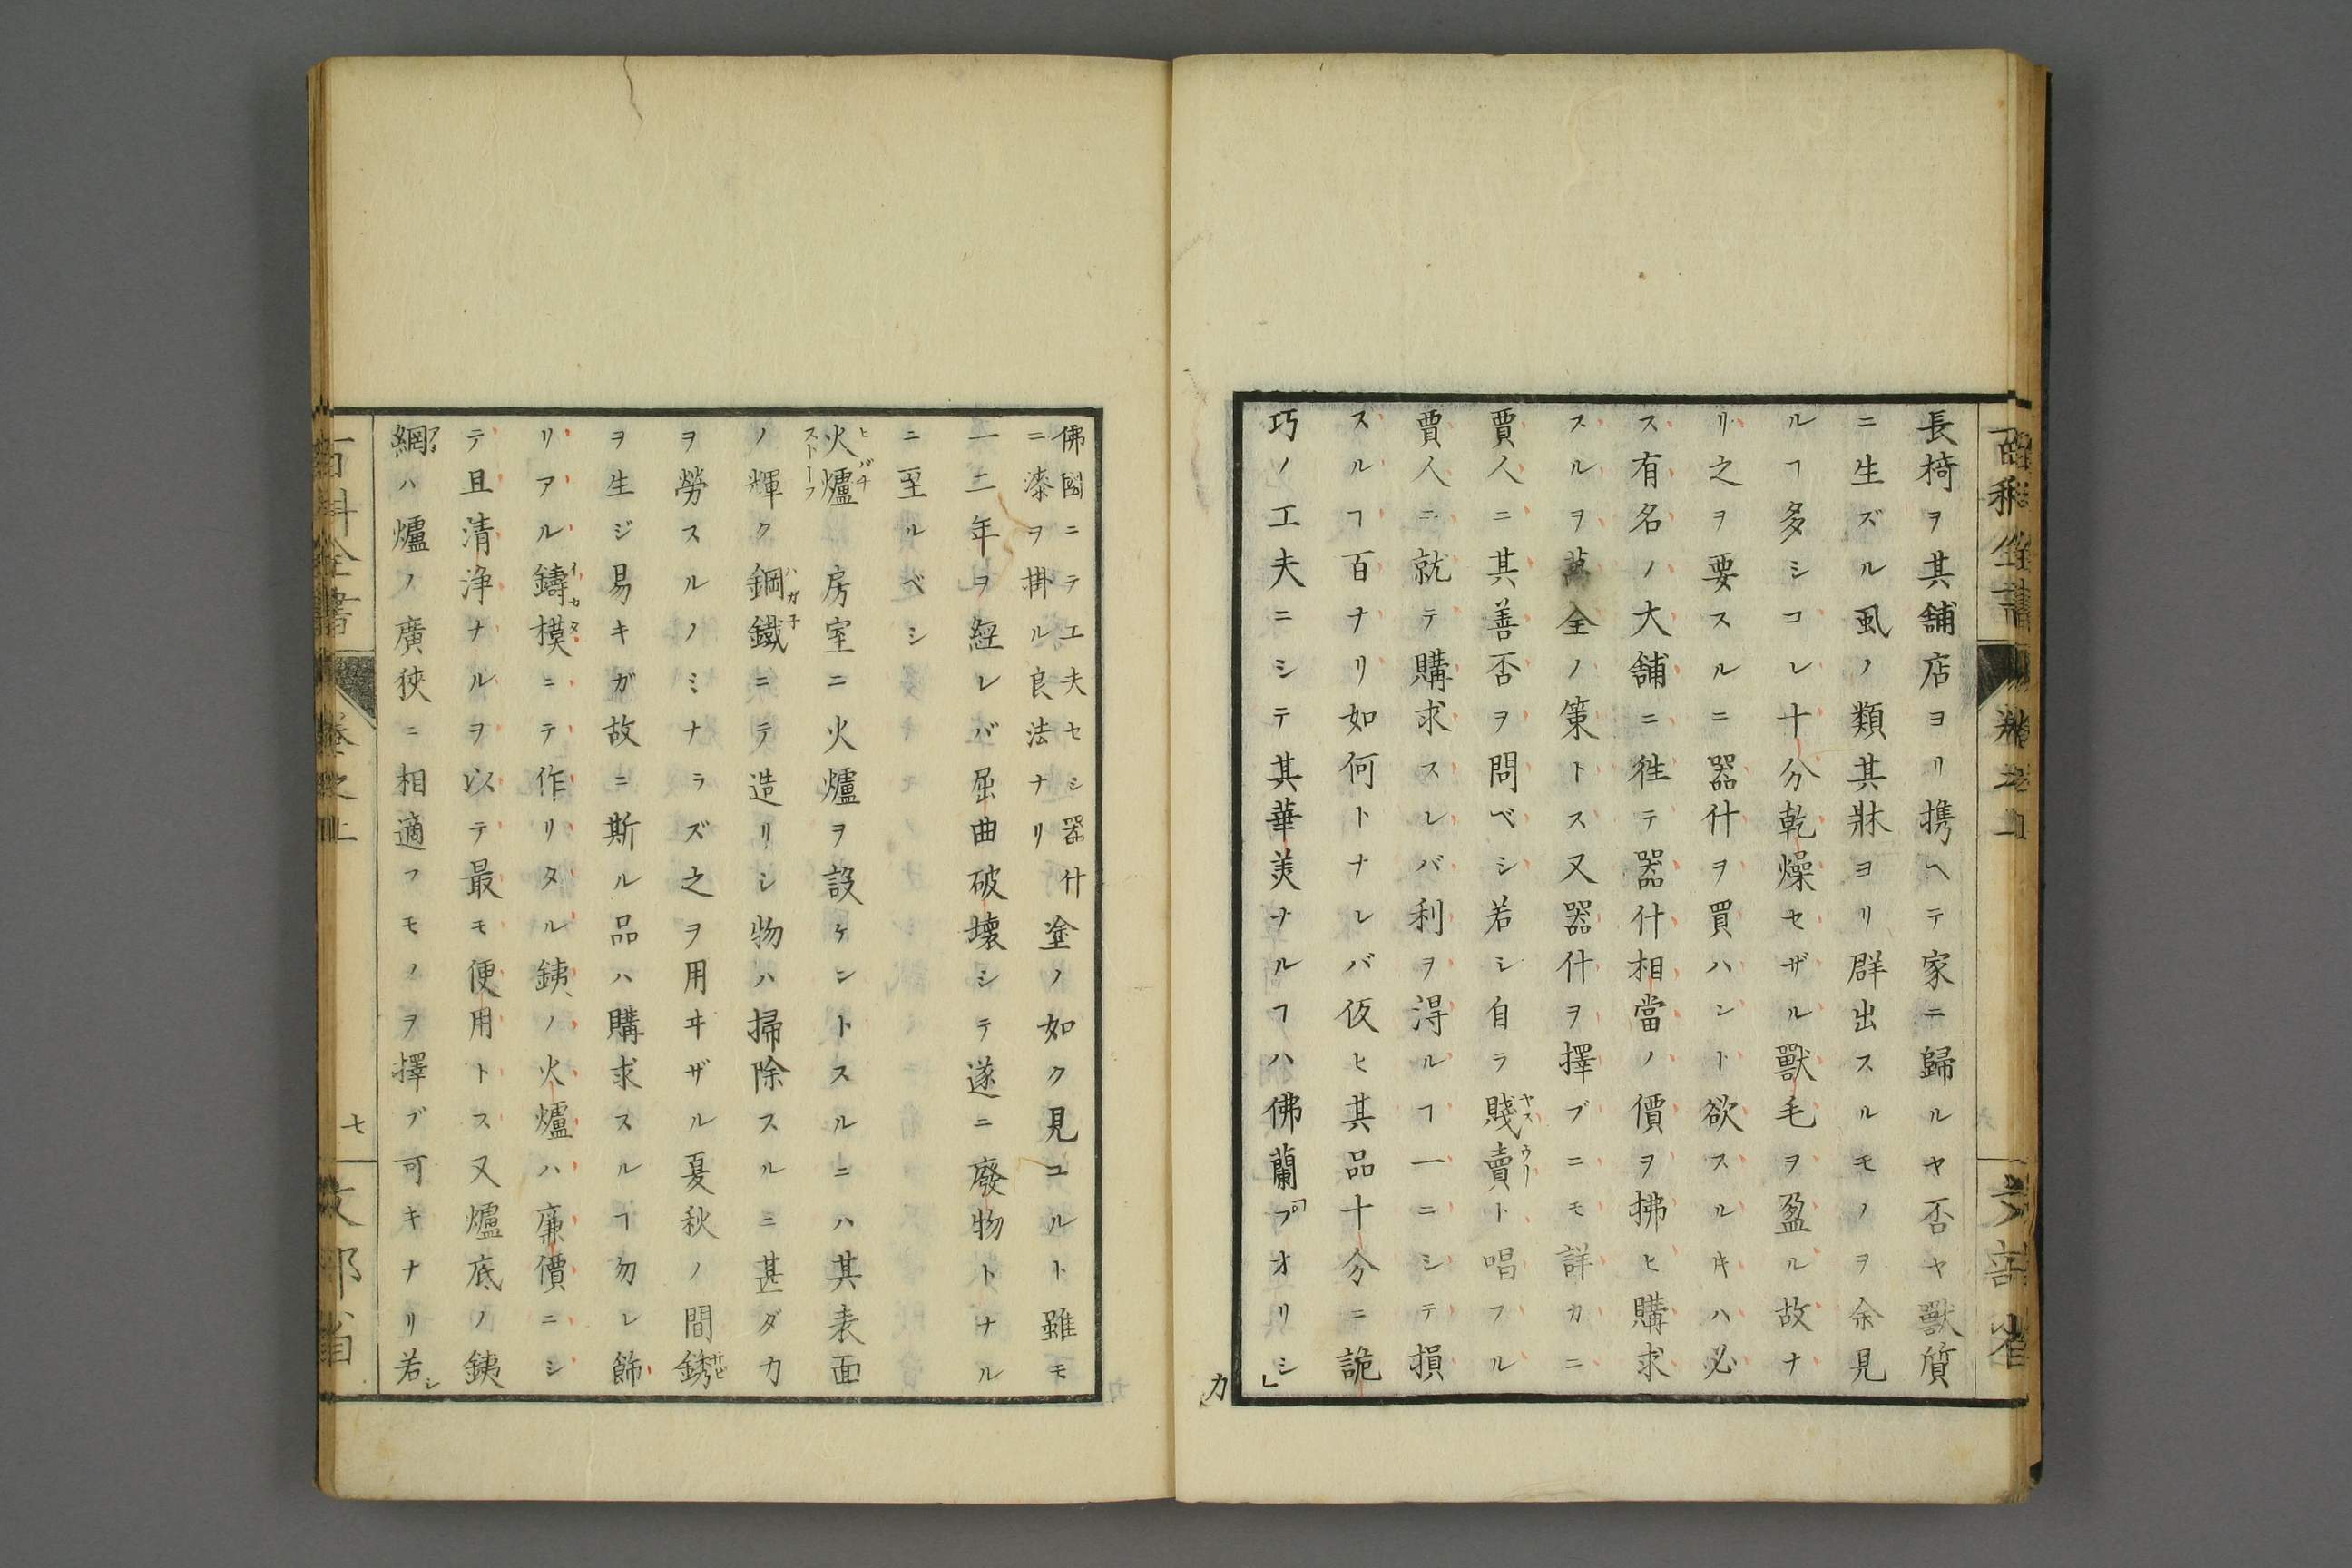 長椅ヲ其舗店ヨリ携ヘテ家ニ歸ルヤ否ヤ獸質
ニ生ズル虱ノ類其牀ヨリ群出スルモノヲ余見
ルヿ多シコレ十分乾燥セザル獸毛ヲ盈ル故ナ
リ之ヲ要スルニ器什ヲ買ハント欲スルキハ必
ス有名ノ大舗ニ徃テ器什相當ノ價ヲ拂ヒ購求
スルヲ萬全ノ策トス又器什ヲ擇ブニモ詳カニ
賈人ニ其善否ヲ問ベシ若シ自ラ賤賣ト唱フル
賈人ニ就テ購求スレバ利ヲ得ルヿ一ニシテ損
スルヿ百ナリ如何トナレバ仮ヒ其品十分ニ詭
巧ノ工夫ニシテ其華美ナルヿハ佛蘭「プオリシ」
カ
佛國ニテエ夫セシ器什
ニ漆ヲ掛ル良法ナリ
塗ノ如ク見ユルト雖モ
一二年ヲ經レバ屈曲破壊シテ遂ニ廢物トナル
ニ至ルベシ
火爐 房室ニ火爐ヲ設ケントスルニハ其表面
ヒバチ
ストーフ
ノ輝ク鋼鐵ニテ造リシ物ハ掃除スルニ甚ダカ
ハガ子
ヲ勞スルノミナラズ之ヲ用ヰザル夏秋ノ間銹
サビ
ヲ生ジ易キガ故ニ斯ル品ハ購求スルヿ勿レ飾
リアル鑄模ニテ作リタル銕ノ火爐ハ廉價ニシ
イカタ
テ且清浄ナルヲ以テ最モ便用トス又爐底ノ銕
網ハ爐ノ廣狹ニ相適フモノヲ擇ブ可キナリ若シ
百科全書
卷之上
七
文部省